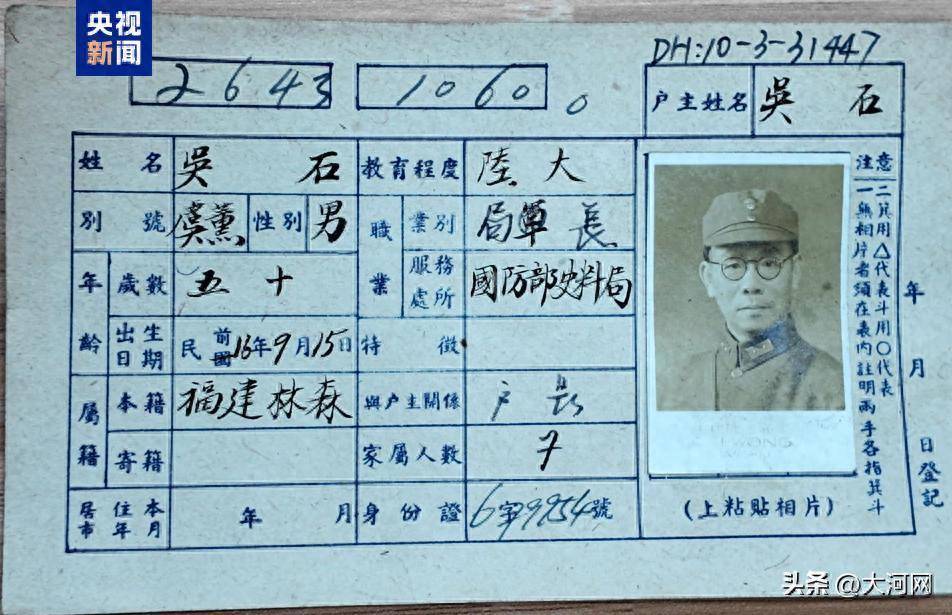 央视
新闻
DH:10-3-31447
2643
1060
戶主姓名 吳石
姓名 吳石 教育程度 陸大
別號 虞薰 性別 男 職業 業別 局長
年齡 歲數 五十 服務處所 國防部史料局
出生日期 民前國16年9月15日 特徵
屬籍 本籍 福建林森 與戶主關係 戶長
寄籍 家屬人數 7
居住本市年月 年 月 身份證 6字9954號
注意
一無相片者須在表內註明兩手各指箕斗
二箕用△代表斗用○代表
年 月 日登記
(上粘貼相片)
WONG
头条 @大河网